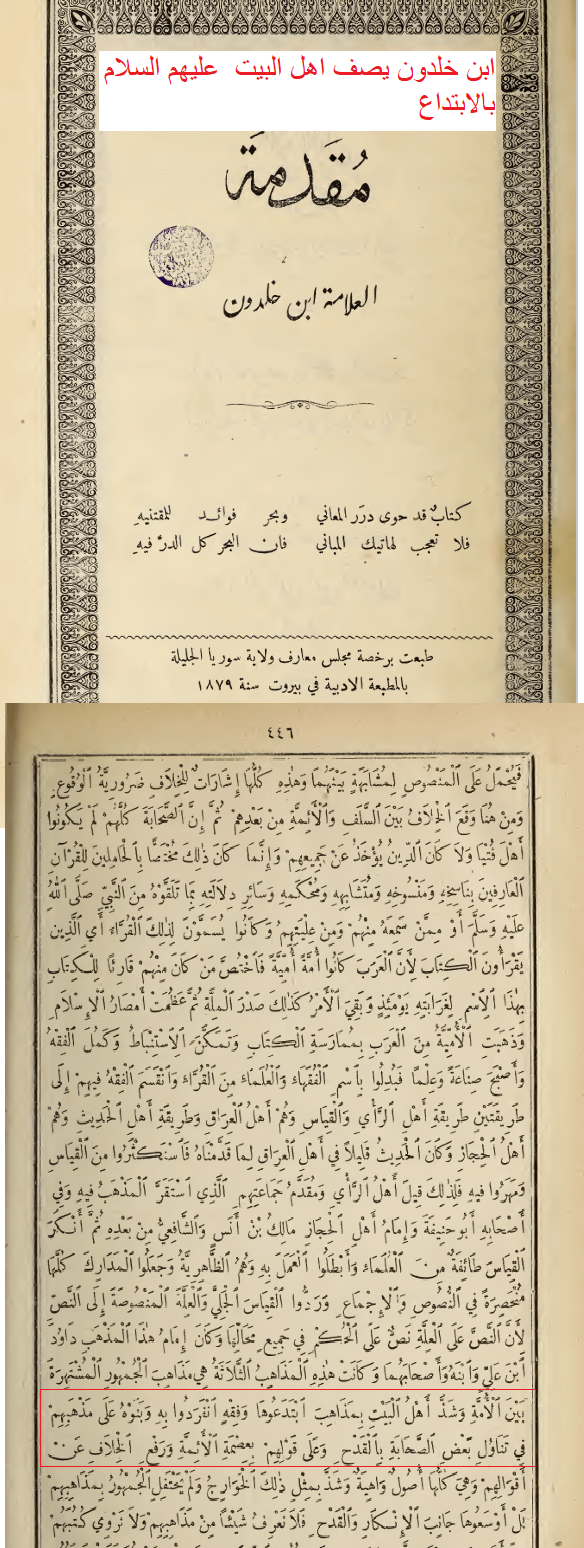 ابن خلدون يصف اهل البيت عليهم السلام
بالابتداع
مُقَدَمَة
العلامة ابن خلدون
كتابٌ قد حوى درَر المعاني وبحر فوائد للمقتنيهِ
فلا تعجب لهاتيك المباني فان البحر كل الدرّ فيهِ
طبعت برخصة مجلس معارف ولاية سوريا الجليلة
بالمطبعة الادبية في بيروت سنة ١٨٧٩
٤٤٦
فَيُحْمَلُ عَلَى ٱلْمَنْصُوصِ لِمُشَابَهَةٍ بَيْنَهُمَا وَهٰذِهِ كُلُّهَا إِشَارَاتٌ لِلْخِلَافِ ضَرُورِيَّةُ ٱلْوُقُوعِ
وَمِنْ هُنَا وَقَعَ ٱلْخِلَافُ بَيْنَ ٱلسَّلَفِ وَٱلْأَئِمَّةِ مِنْ بَعْدِهِمْ ثُمَّ إِنَّ ٱلصَّحَابَةَ كُلَّهُمْ لَمْ يَكُونُوا
أَهْلَ فُتْيَا وَلَا كَانَ ٱلدِّينُ يُؤْخَذُ عَنْ جَمِيعِهِمْ وَإِنَّمَا كَانَ ذٰلِكَ مُخْتَصًّا بِٱلْحَامِلِينَ لِلْقُرْآنِ
ٱلْعَارِفِينَ بِنَاسِخِهِ وَمَنْسُوخِهِ وَمُتَشَابِهِهِ وَمُحْكَمِهِ وَسَائِرِ دِلَالَتِهِ بِمَا تَلَقَّوْهُ مِنَ ٱلنَّبِيِّ صَلَّى ٱللهُ
عَلَيْهِ وَسَلَّمَ أَوْ مِمَّنْ سَمِعَهُ مِنْهُمْ وَمِنْ عِلْيَتِهِمْ وَكَانُوا يُسَمَّوْنَ لِذٰلِكَ ٱلْقُرَّاءَ أَيِ ٱلَّذِينَ
يَقْرَأُونَ ٱلْكِتَابَ لِأَنَّ ٱلْعَرَبَ كَانُوا أُمَّةً أُمِّيَّةً فَٱخْتَصَّ مَنْ كَانَ مِنْهُمْ قَارِئًا لِلْكِتَابِ
بِهٰذَا ٱلِٱسْمِ لِغَرَابَتِهِ يَوْمَئِذٍ وَبَقِيَ ٱلْأَمْرُ كَذٰلِكَ صَدْرَ ٱلْمِلَّةِ ثُمَّ عَظُمَتْ أَمْصَارُ ٱلْإِسْلَامِ
وَذَهَبَتِ ٱلْأُمِّيَّةُ مِنَ ٱلْعَرَبِ بِمُمَارَسَةِ ٱلْكِتَابِ وَتَمَكَّنَ ٱلِٱسْتِنْبَاطُ وَكَمُلَ ٱلْفِقْهُ
وَأَصْبَحَ صِنَاعَةً وَعِلْمًا فَبُدِّلُوا بِٱسْمِ ٱلْفُقَهَاءِ وَٱلْعُلَمَاءِ مِنَ ٱلْقُرَّاءِ وَٱنْقَسَمَ ٱلْفِقْهُ فِيهِمْ إِلَى
طَرِيقَتَيْنِ طَرِيقَةِ أَهْلِ ٱلرَّأْيِ وَٱلْقِيَاسِ وَهُمْ أَهْلُ ٱلْعِرَاقِ وَطَرِيقَةِ أَهْلِ ٱلْحَدِيثِ وَهُمْ
أَهْلُ ٱلْحِجَازِ وَكَانَ ٱلْحَدِيثُ قَلِيلًا فِي أَهْلِ ٱلْعِرَاقِ لِمَا قَدَّمْنَاهُ فَٱسْتَكْثَرُوا مِنَ ٱلْقِيَاسِ
وَمَهَرُوا فِيهِ فَلِذٰلِكَ قِيلَ أَهْلُ ٱلرَّأْيِ وَمُقَدَّمُ جَمَاعَتِهِمِ ٱلَّذِي ٱسْتَقَرَّ ٱلْمَذْهَبُ فِيهِ وَفِي
أَصْحَابِهِ أَبُو حَنِيفَةَ وَإِمَامُ أَهْلِ ٱلْحِجَازِ مَالِكُ بْنُ أَنَسٍ وَٱلشَّافِعِيُّ مِنْ بَعْدِهِ ثُمَّ أَنْكَرَ
ٱلْقِيَاسَ طَائِفَةٌ مِنَ ٱلْعُلَمَاءِ وَأَبْطَلُوا ٱلْعَمَلَ بِهِ وَهُمُ ٱلظَّاهِرِيَّةُ وَجَعَلُوا ٱلْمَدَارِكَ كُلَّهَا
مُنْحَصِرَةً فِي ٱلنُّصُوصِ وَٱلْإِجْمَاعِ وَرَدُّوا ٱلْقِيَاسَ ٱلْجَلِيَّ وَٱلْعِلَّةَ ٱلْمَنْصُوصَةَ إِلَى ٱلنَّصِّ
لِأَنَّ ٱلنَّصَّ عَلَى ٱلْعِلَّةِ نَصٌّ عَلَى ٱلْحُكْمِ فِي جَمِيعِ مَحَالِّهَا وَكَانَ إِمَامُ هٰذَا ٱلْمَذْهَبِ دَاوُدَ
ٱبْنَ عَلِيٍّ وَٱبْنَهُ وَأَصْحَابَهُمَا وَكَانَتْ هٰذِهِ ٱلْمَذَاهِبُ ٱلثَّلَاثَةُ هِيَ مَذَاهِبَ ٱلْجُمْهُورِ ٱلْمُشْتَهِرَةَ
بَيْنَ ٱلْأُمَّةِ وَشَذَّ أَهْلُ ٱلْبَيْتِ بِمَذَاهِبَ ٱبْتَدَعُوهَا وَفِقْهٍ ٱنْفَرَدُوا بِهِ وَبَنَوْهُ عَلَى مَذْهَبِهِمْ
فِي تَنَاوُلِ بَعْضِ ٱلصَّحَابَةِ بِٱلْقَدْحِ وَعَلَى قَوْلِهِمْ بِعِصْمَةِ ٱلْأَئِمَّةِ وَرَفْعِ ٱلْخِلَافِ عَنْ
أَقْوَالِهِمْ وَهِيَ كُلُّهَا أُصُولٌ وَاهِيَةٌ وَشَذَّ بِمِثْلِ ذٰلِكَ ٱلْخَوَارِجُ وَلَمْ يَحْتَفِلِ ٱلْجُمْهُورُ بِمَذَاهِبِهِمْ
بَلْ أَوْسَعُوهَا جَانِبَ ٱلْإِنْكَارِ وَٱلْقَدْحِ فَلَا نَعْرِفُ شَيْئًا مِنْ مَذَاهِبِهِمْ وَلَا نَرْوِي كُتُبَهُمْ